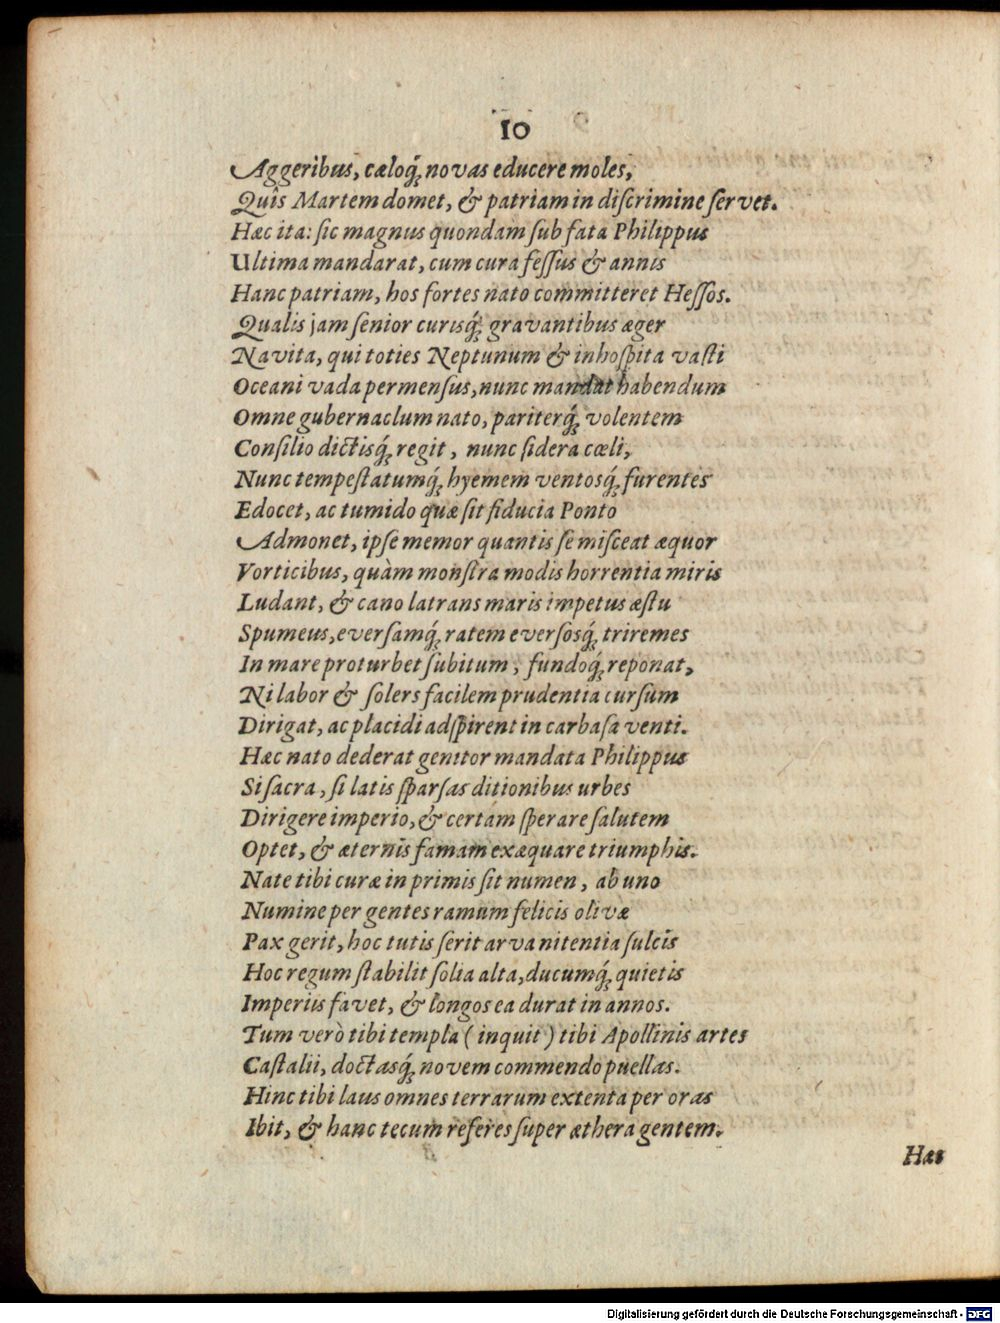 10
Aggeribus, cæloq́ꝫ novas educere moles,
Quîs Martem domet, & patriam in diſcrimine ſervet.
Hæc ita: ſic magnus quondam ſub fata Philippus
Ultima mandarat, cum cura feſſus & annis
Hanc patriam, hos fortes nato committeret Heſſos.
Qualis jam ſenior curisq́ꝫ gravantibus æger
Navita, qui toties Neptunum & inhoſpita vaſti
Oceani vada permenſus, nunc mandat habendum
Omne gubernaclum nato, pariterq́ꝫ volentem
Conſilio dictisq́ꝫ regit, nunc ſidera cœli,
Nunc tempeſtatumq́ꝫ hyemem ventosq́ꝫ furentes
Edocet, ac tumido quæ ſit fiducia Ponto
Admonet, ipſe memor quantis ſe miſceat æquor
Vorticibus, quàm monſtra modis horrentia miris
Ludant, & cano latrans maris impetus æſtu
Spumeus, everſamq́ꝫ ratem everſosq́ꝫ triremes
In mare proturbet ſubitum, fundoq́ꝫ reponat,
Ni labor & ſolers facilem prudentia curſum
Dirigat, ac placidi adſpirent in carbaſa venti.
Hæc nato dederat genitor mandata Philippus
Si ſacra, ſi latis ſparſas ditionibus urbes
Dirigere imperio, & certam ſperare ſalutem
Optet, & æternis famam exæquare triumphis.
Nate tibi curæ in primis ſit numen, ab uno
Numine per gentes ramum felicis olivæ
Pax gerit, hoc tutis ſerit arva nitentia ſulcis
Hoc regum ſtabilit ſolia alta, ducumq́ꝫ quietis
Imperiis favet, & longos ea durat in annos.
Tum verò tibi templa ( inquit ) tibi Apollinis artes
Caſtalii, doctasq́ꝫ novem commendo puellas.
Hinc tibi laus omnes terrarum extenta per oras
Ibit, & hanc tecum referes ſuper æthera gentem.
Hæc
Digitalisierung gefördert durch die Deutsche Forschungsgemeinschaft - DFG